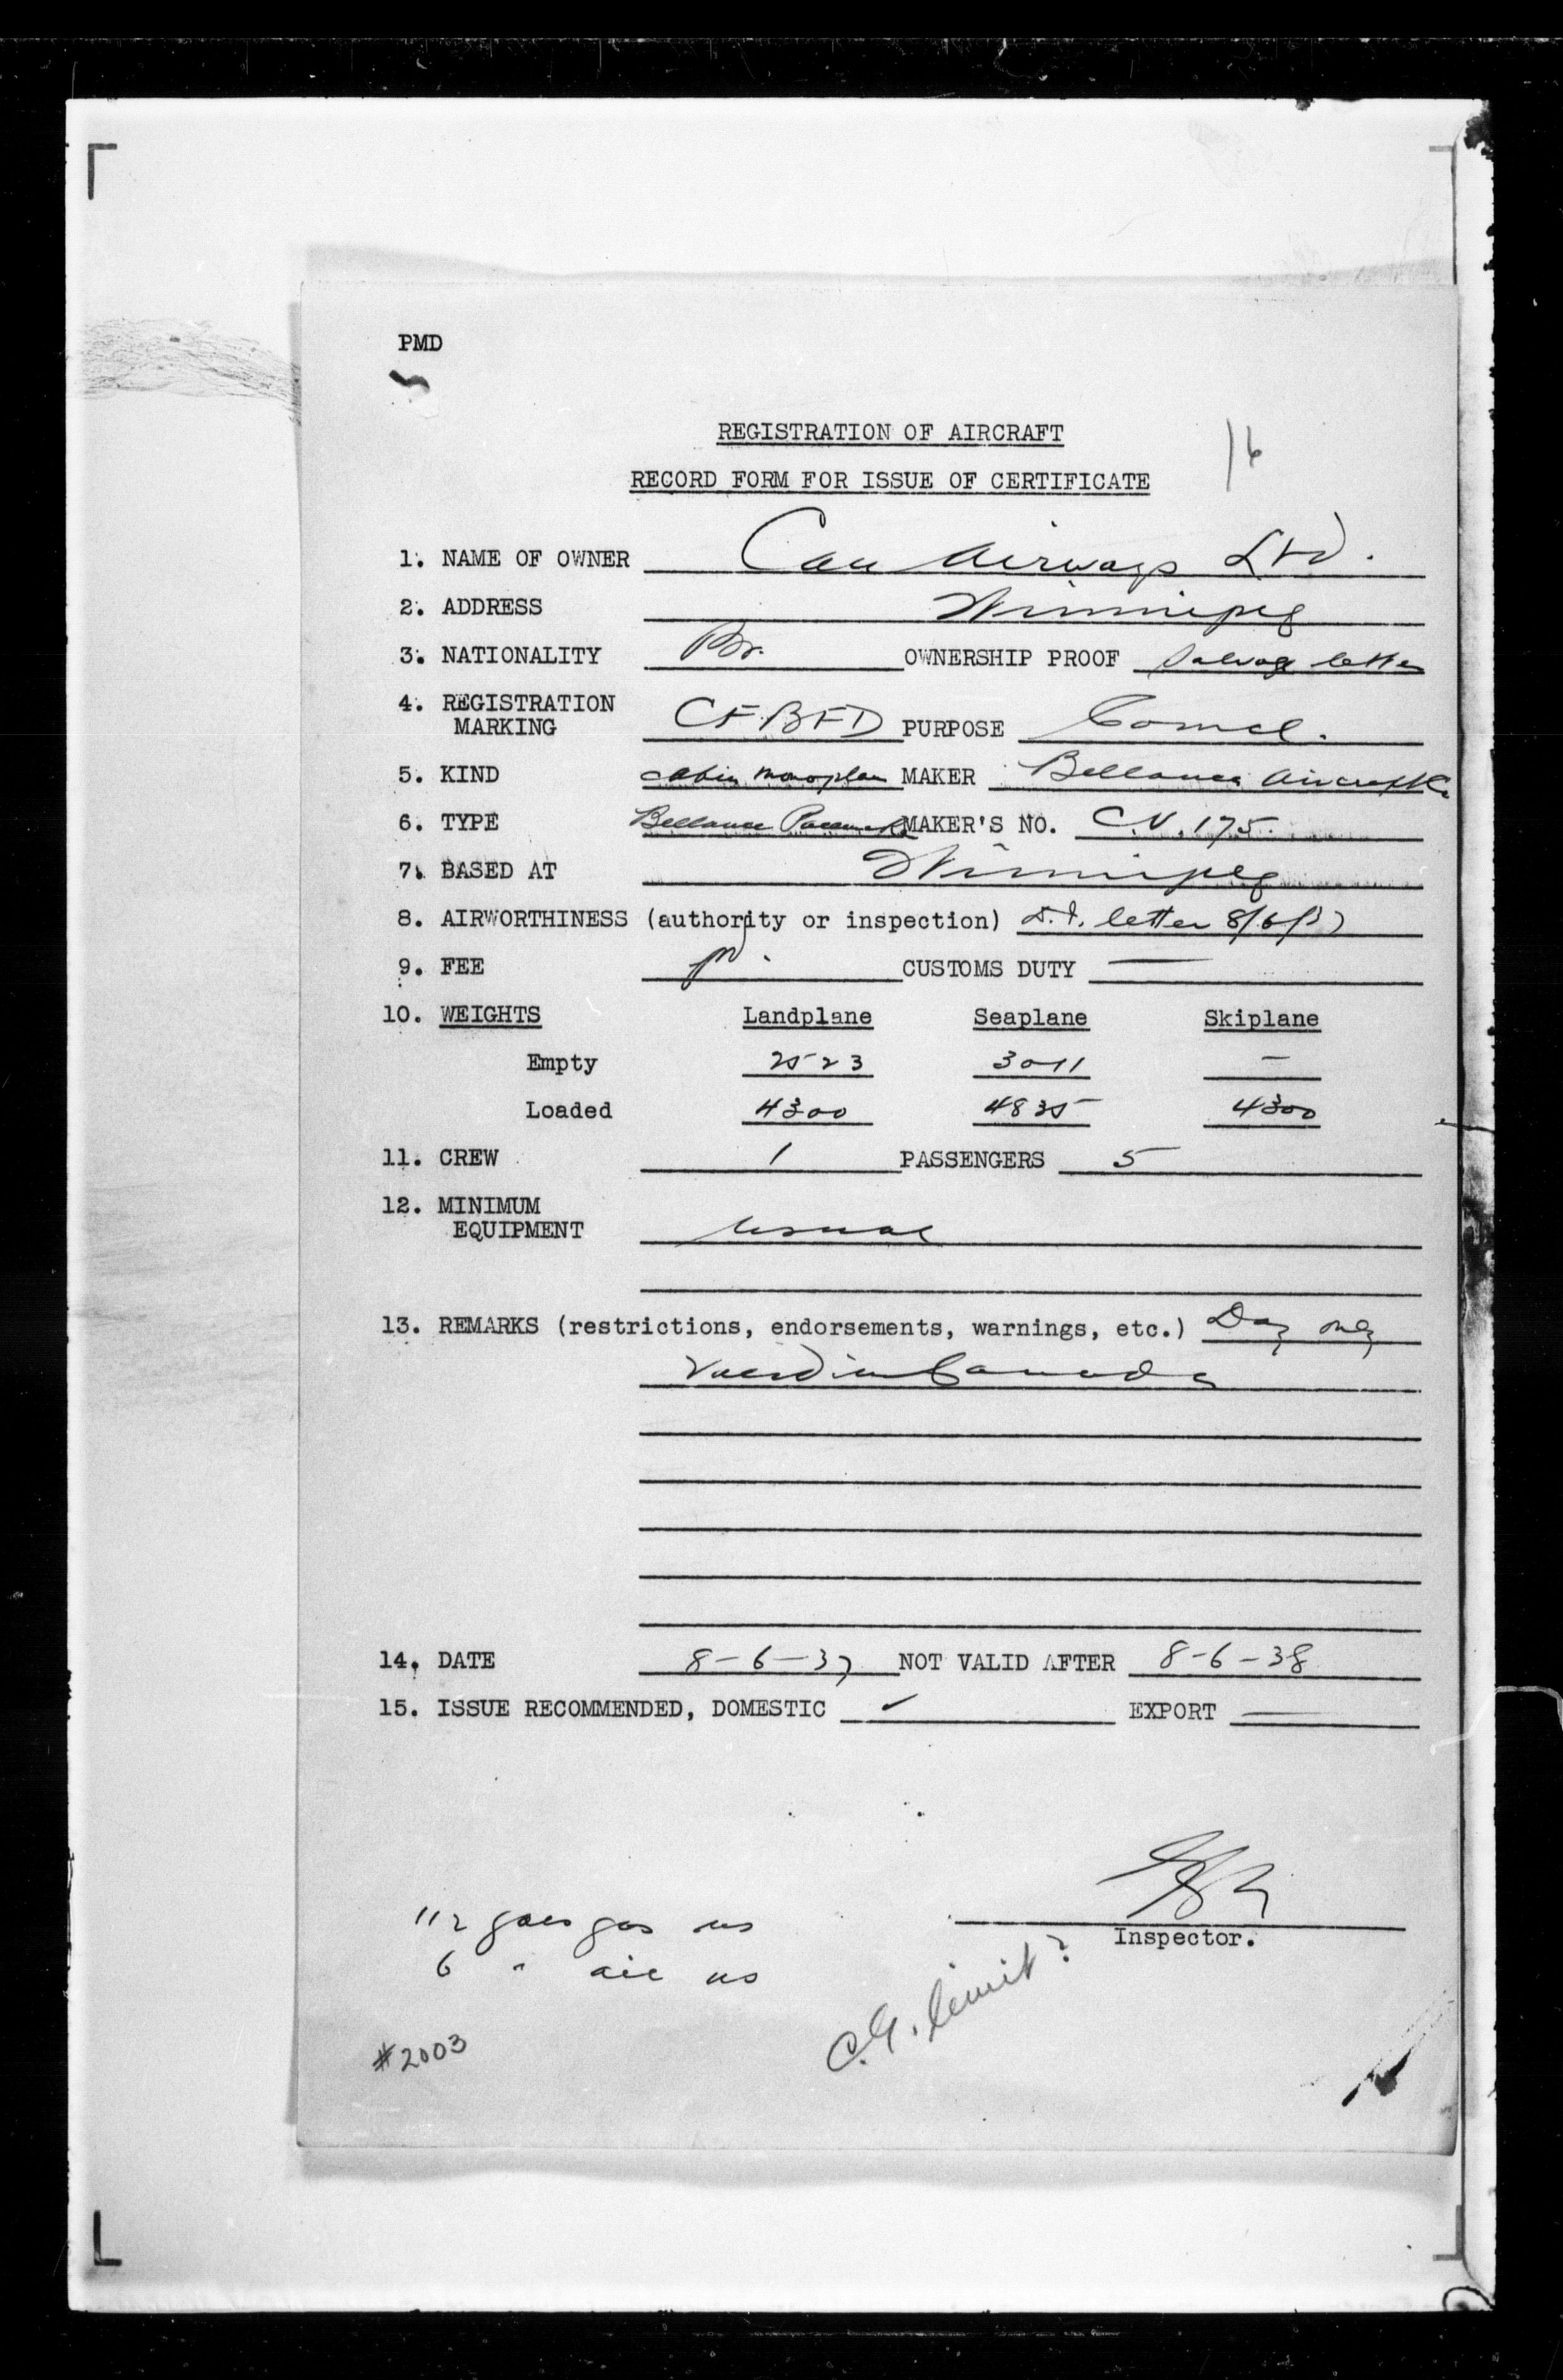 PMD
REGISTRATION OF AIRCRAFT
16
RECORD FORM FOR ISSUE OF CERTIFICATE
1. NAME OF OWNER Can Airways Ltd.
2. ADDRESS Winnipeg
3. NATIONALITY Br. OWNERSHIP PROOF Salvage letter
4. REGISTRATION
MARKING CF.BFD PURPOSE Comcl.
5. KIND cabin monoplane MAKER Bellanca Aircraft Co
6. TYPE Bellanca Pacemaker MAKER'S NO. C.N. 175.
7. BASED AT Winnipeg
8. AIRWORTHINESS (authority or inspection) D.I. letter 8/6/37
9. FEE pd. CUSTOMS DUTY —
10. WEIGHTS Landplane Seaplane Skiplane
Empty 2523 3011 —
Loaded 4300 4835 4300
11. CREW 1 PASSENGERS 5
12. MINIMUM
EQUIPMENT usual
13. REMARKS (restrictions, endorsements, warnings, etc.) Day only
Valid in Canada
14. DATE 8-6-37 NOT VALID AFTER 8-6-38
15. ISSUE RECOMMENDED, DOMESTIC ✓ EXPORT —
112 gals gas
Inspector.
6 "
C.G. limit?
#2003